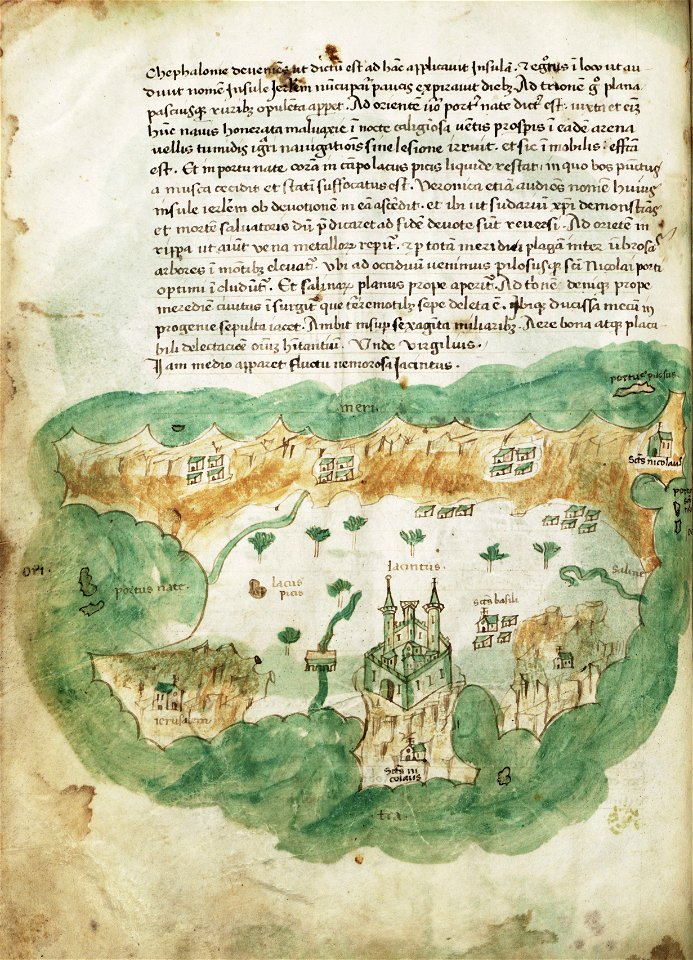 Chephalonie deveniēs ut dictū est ad hāc applicavit Insulā. & egrotus ī loco ut au-
divit nomen Insule Ierlem nūcupari paucis expiravit diebꝫ. Ad trionē gͦ plana
pascuisqꝫ ruribus opulēta appet. Ad oriente ũo portꝰ nate dictꝰ est. iuxta et eīꝫ
hūc navis honerata malvaxie ī nocte caligiosa vētis prospis ī eadē arena
vellis tumidis igͣri navigatiōis sine lesione irruit. et sic īmobilis: effcā
est. Et in portu nate. corā in cāpo lacus picis liquide restat: in quo bos pūctus
a musca cecidit et statī suffocatus est. Veronica etiā audiēs nomē huius
insule ierlem ob devotionē in eā ascēdit. et ibi ut sudariū xpi demonstrās
et mortē salvatoris dū pdicaret ad fidē devote sūt reversi. Ad oriētē in
rippa ut aiūt vena metallorꝫ reptꝰ. & p totam meridiei plagā inter ūbrosas
arbores ī montibꝫ elevatꝰ. Ubi ad occiduū venimus pilosusqꝫ sctī Nicolai porti
optimi ī cludūtꝰ. Et salinarꝫ planus prope aperitꝰ. Ad tͦonē deniqꝫ prope
meredien civitas ī surgit que terremotibꝫ sepe deleta ē. ibique ducissa mecū in
progenie sepulta iacet. Ambit insup sexaginta miliaribꝫ. Aere bona atqꝫ placa
bili delectaciōe oīuꝫ hītantiū. Unde Virgilius.
Iam medio apparet fluctu nemorosa Iacintus.
portus pilosus
meri.
Scts nicolaus
ori.
portus nate.
lacus
picis
Iacintus.
Scts basili
Saline
ierusalem
Scts ni
colaus
tra.